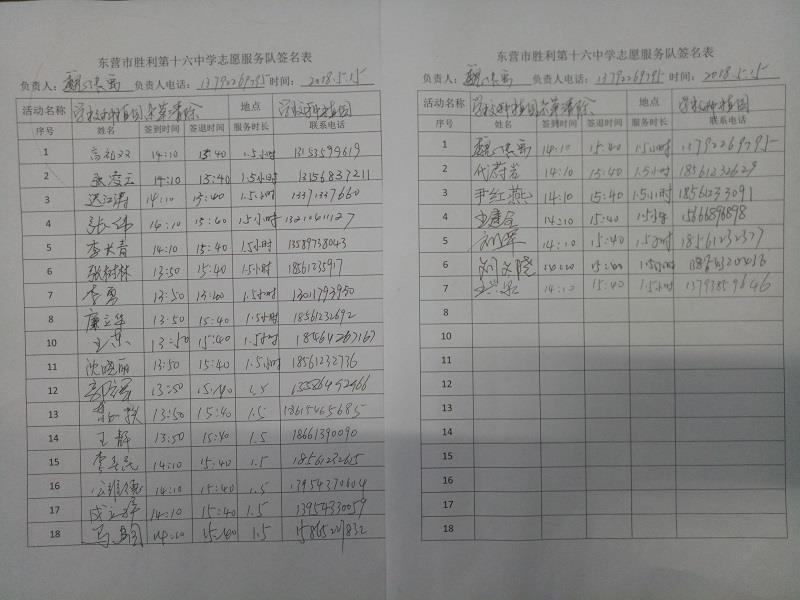 东营市胜利第十六中学志愿服务队签名表
负责人: 负责人电话: 13792269795 时间: 2018.5.15
活动名称 学校种植园杂草清除 地点 学校种植园
序号 姓名 签到时间 签退时间 服务时长 联系电话
1 14:10 15:40 1.5小时 13153594619
2 张凌云 14:10 15:40 1.5小时 13156837211
3 14:10 15:40 1.5小时 13371337660
4 张伟 14:10 15:40 1.5小时
5 李长青 14:10 15:40 1.5小时 13589738043
6 张树林 13:50 15:40 1.5小时 18561235917
7 李勇 13:50 1.5小时
8 廉立华 13:50 15:40 1.5小时 18561232692
10 13:50 15:40 1.5小时 18564267167
11 沈晓丽 13:50 15:40 1.5小时 18561232736
12 13:50 15:40 1.5 13586492966
13 13:50 15:40 1.5 18615465685
14 王静 13:50 15:40 1.5 18661390090
15 14:10 15:40 1.5 18561232615
16 14:10 15:40 1.5 13954370604
17 14:10 15:40 1.5 13954330059
18 14:10 15:40 1.5
东营市胜利第十六中学志愿服务队签名表
负责人: 负责人电话: 13792269795 时间: 2018.5.15
活动名称 学校种植园杂草清除 地点 学校种植园
序号 姓名 签到时间 签退时间 服务时长 联系电话
1 14:10 15:40 1.5小时 13792269795
2 代蔚岩 14:10 15:40 1.5小时 18561232629
3 尹红燕 14:10 15:40 1.5小时 18561233091
4 14:10 15:40 1.5小时 15866896898
5 14:10 15:40 1.5小时 18561232327
6 刘文晓 1.5小时
7 14:10 15:40 1.5小时 13793859646
8
10
11
12
13
14
15
16
17
18